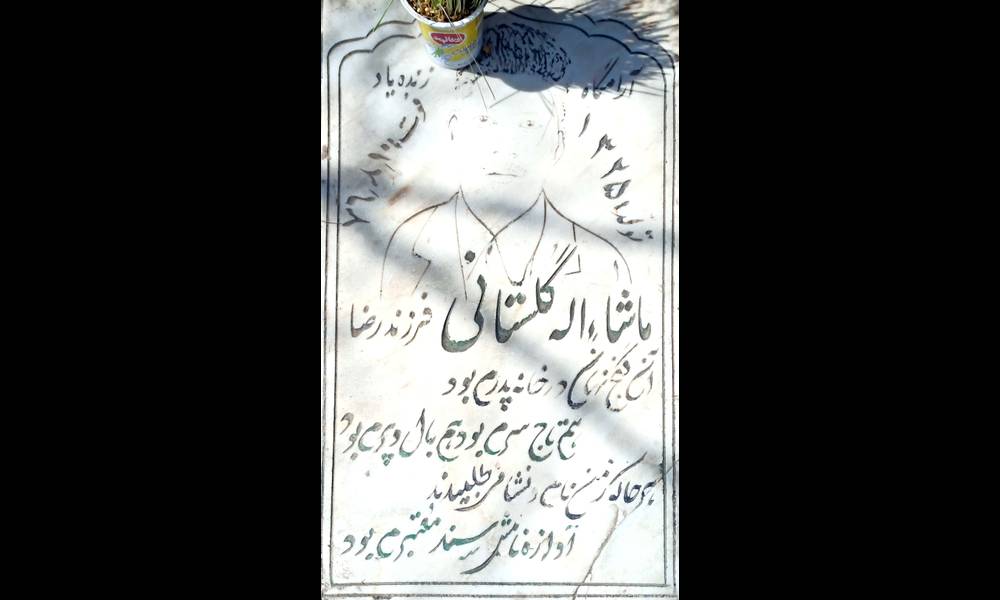 آرامگاه
زنده یاد
تولد ۱۳۳۵
فوت
ماشاءاله گلستانی فرزند رضا
آن گنج زمان در خانه پدرم بود
هم تاج سرم بود هم بال و پرم بود
هر جا که ز من نام و نشانی طلبیدند
آوازه نامش سند معتبرم بود